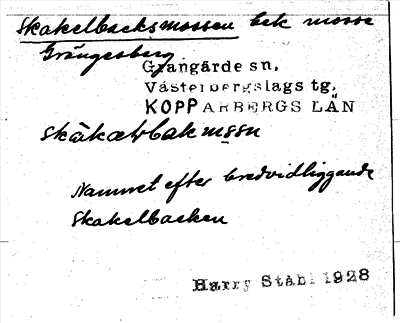 Skakelbacksmossen bek mosse
Grängesberg
Grangärde sn.
Västerbergslags tg.
KOPPARBERGS LÄN
skàkælbakmssn
Namnet efter bredvidliggande
Skakelbacken
Harry Ståhl 1928